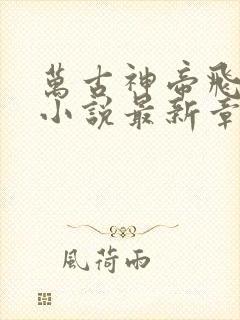 萬古神帝飛
小說最新章
風荷雨